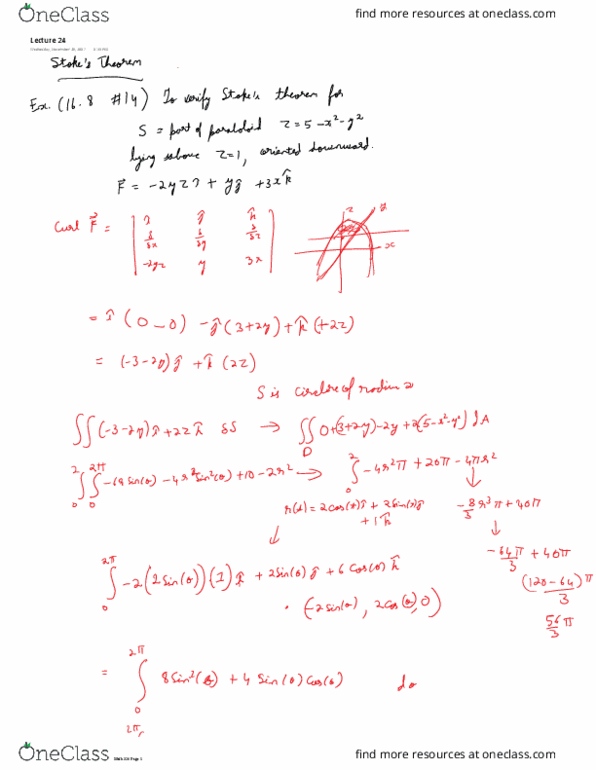 OneClass
find more resources at oneclass.com
Lecture 24
Stoke's Theorem
Ex. (16.8 #14) To verify Stoke's theorem for
S = part of paraboloid z = 5 - x² - y²
lying above z = 1, oriented downward.
F⃗ = -2yz î + yĵ + 3x k̂
Curl F⃗ = | î ĵ k̂ |
| δ/δx δ/δy δ/δz |
| -2yz y 3x |
z
x
= î (0 - 0) - ĵ (3 + 2y) + k̂ (+2z)
= (-3 - 2y) ĵ + k̂ (2z)
S is circle of radius 2
∬ (-3-2y) ĵ + 2z k̂ δS → ∬ D
∫₀² ∫₀^2π → ∫₀² -4r²π + 20π - 4πr²
r(t) = 2cos(t) î + 2sin(t) ĵ + 1 k̂
-8/3 r³π + 40π
-64π/3 + 40π
(120 - 64)π/3
56/3 π
∫₀^2π -2(2sin(θ))(1) î + 2sin(θ) ĵ + 6cos(θ) k̂
· (-2sin(θ), 2cos(θ), 0)
= ∫₀^2π 8sin²(θ) + 4 Sin(θ) Cos(θ) dθ
2π
OneClass
find more resources at oneclass.com